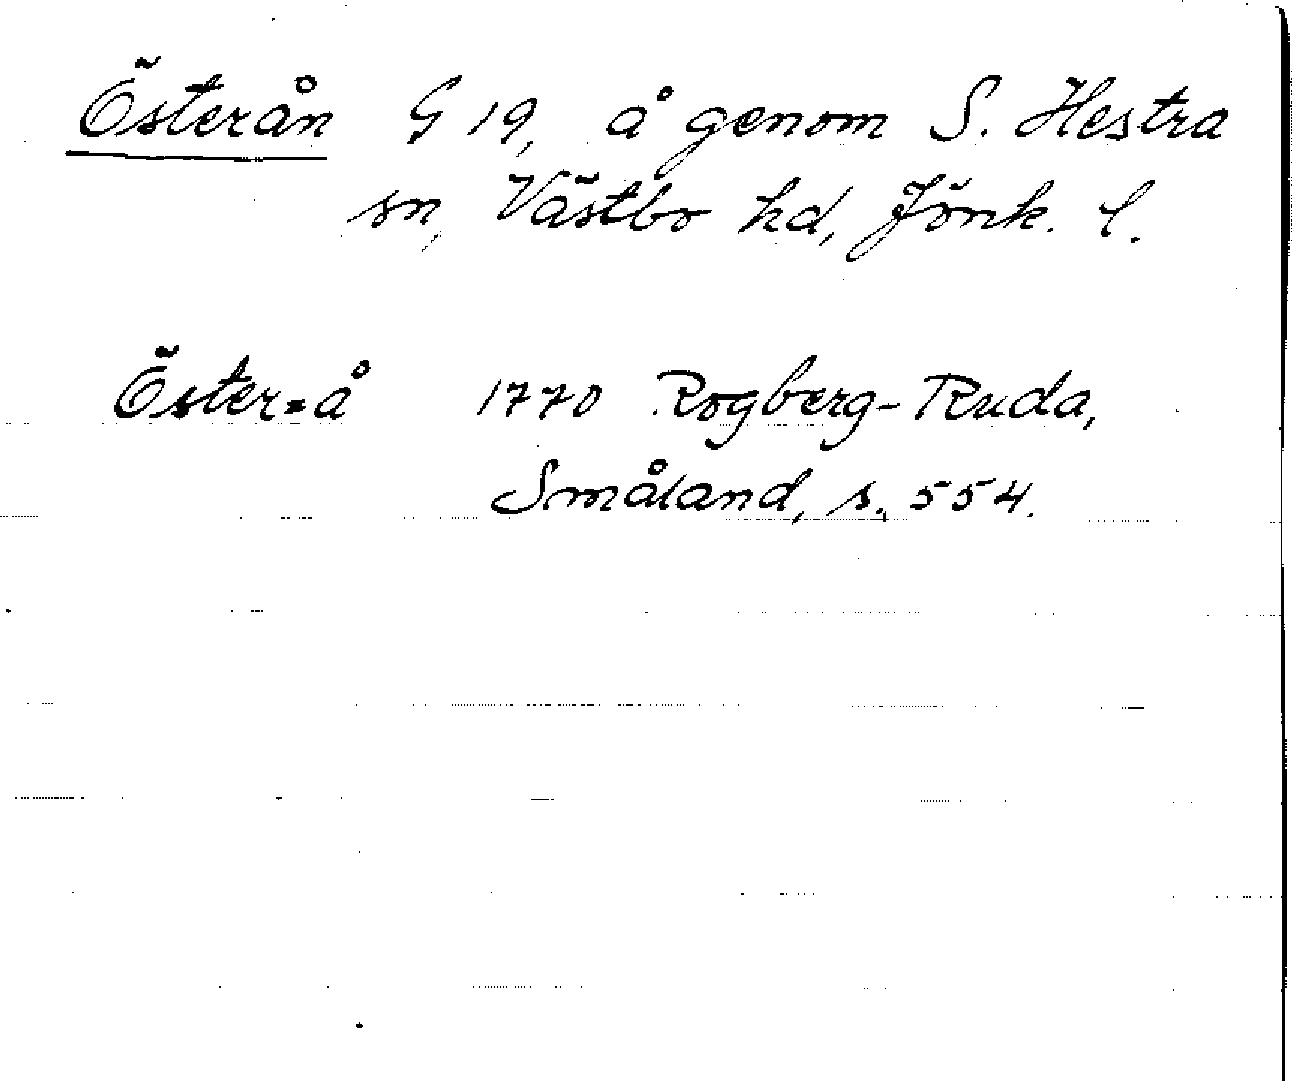 Österån G 19, å genom S. Hestra
sn, Västbo hd, Jönk. l.
Öster=å 1770 Rogberg-Ruda,
Småland, s. 554.